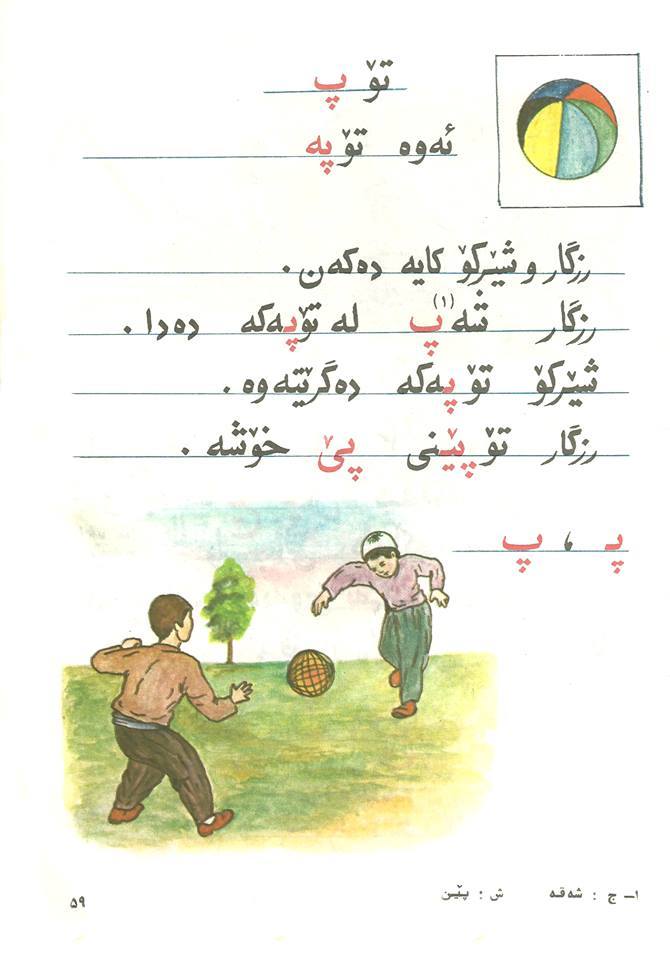 تۆپ
ئەوە تۆپە
رزگار و شێرکۆ کایە دەکەن.
رزگار شەپ(١) لە تۆپەکە دەدا.
شێرکۆ تۆپەکە دەگرێتەوە.
رزگار تۆپێنی پێ خۆشە.
پـ ، پ
١- ج : شەقە ش : پێن
٥٩